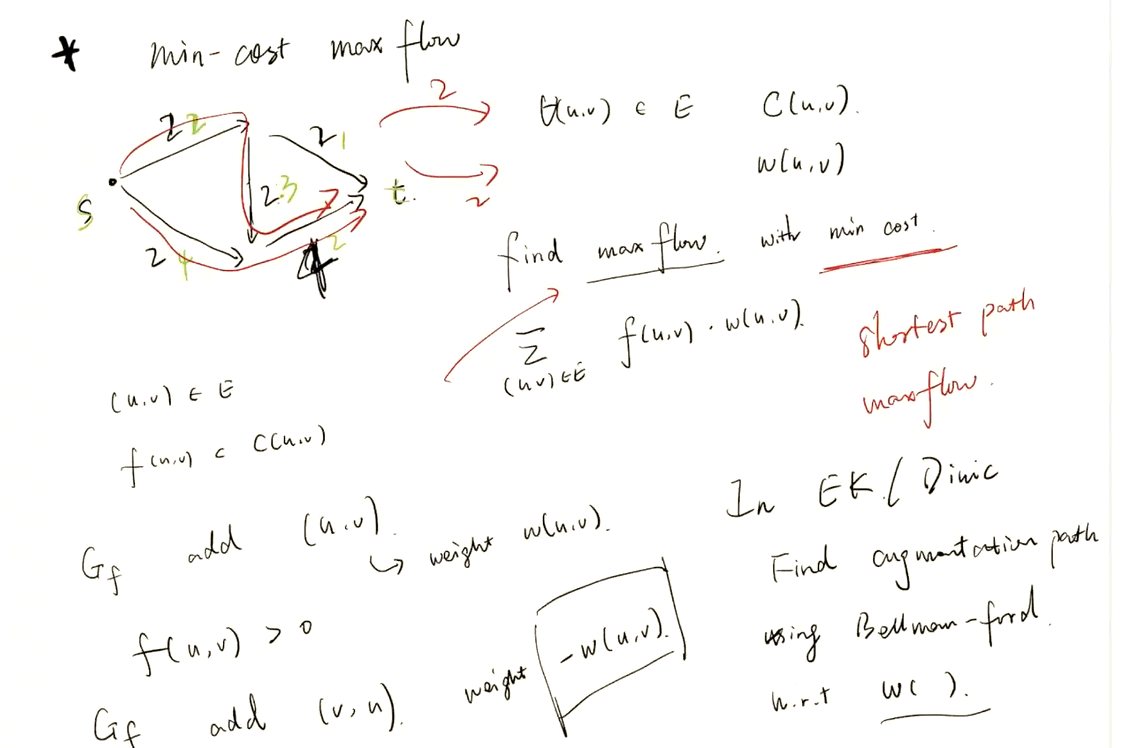 * min-cost max flow
2 2
2 1
2 3
2 4
4 2
s
t.
2
2
∀(u,v) ∈ E C(u,v).
w(u,v)
find max flow. with min cost.
Σ f(u,v) · w(u,v).
(u,v) ∈ E
shortest path
max flow.
(u,v) ∈ E
f(u,v) < C(u,v)
Gf add (u,v).
↳ weight w(u,v).
f(u,v) > 0
Gf add (v,u). weight -w(u,v).
In EK / Dinic
Find augmentation path
using Bellman-ford.
w.r.t w( ).